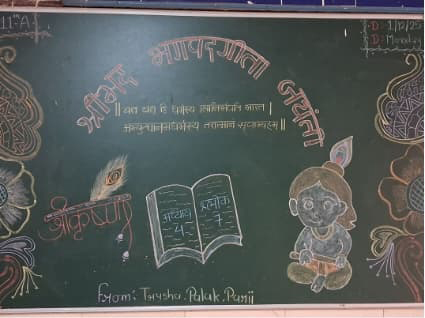 11th A
D:- 1/12/25
D:- Monday
श्रीमद भगवदगीता जयंती
|| यदा यदा हि धर्मस्य ग्लानिर्भवति भारत |
अभ्युत्थानमधर्मस्य तदात्मानं सृजाम्यहम् ||
श्रीकृष्णा
अध्याय
4.
श्लोक
7
From: Trysha, Palak, Parii